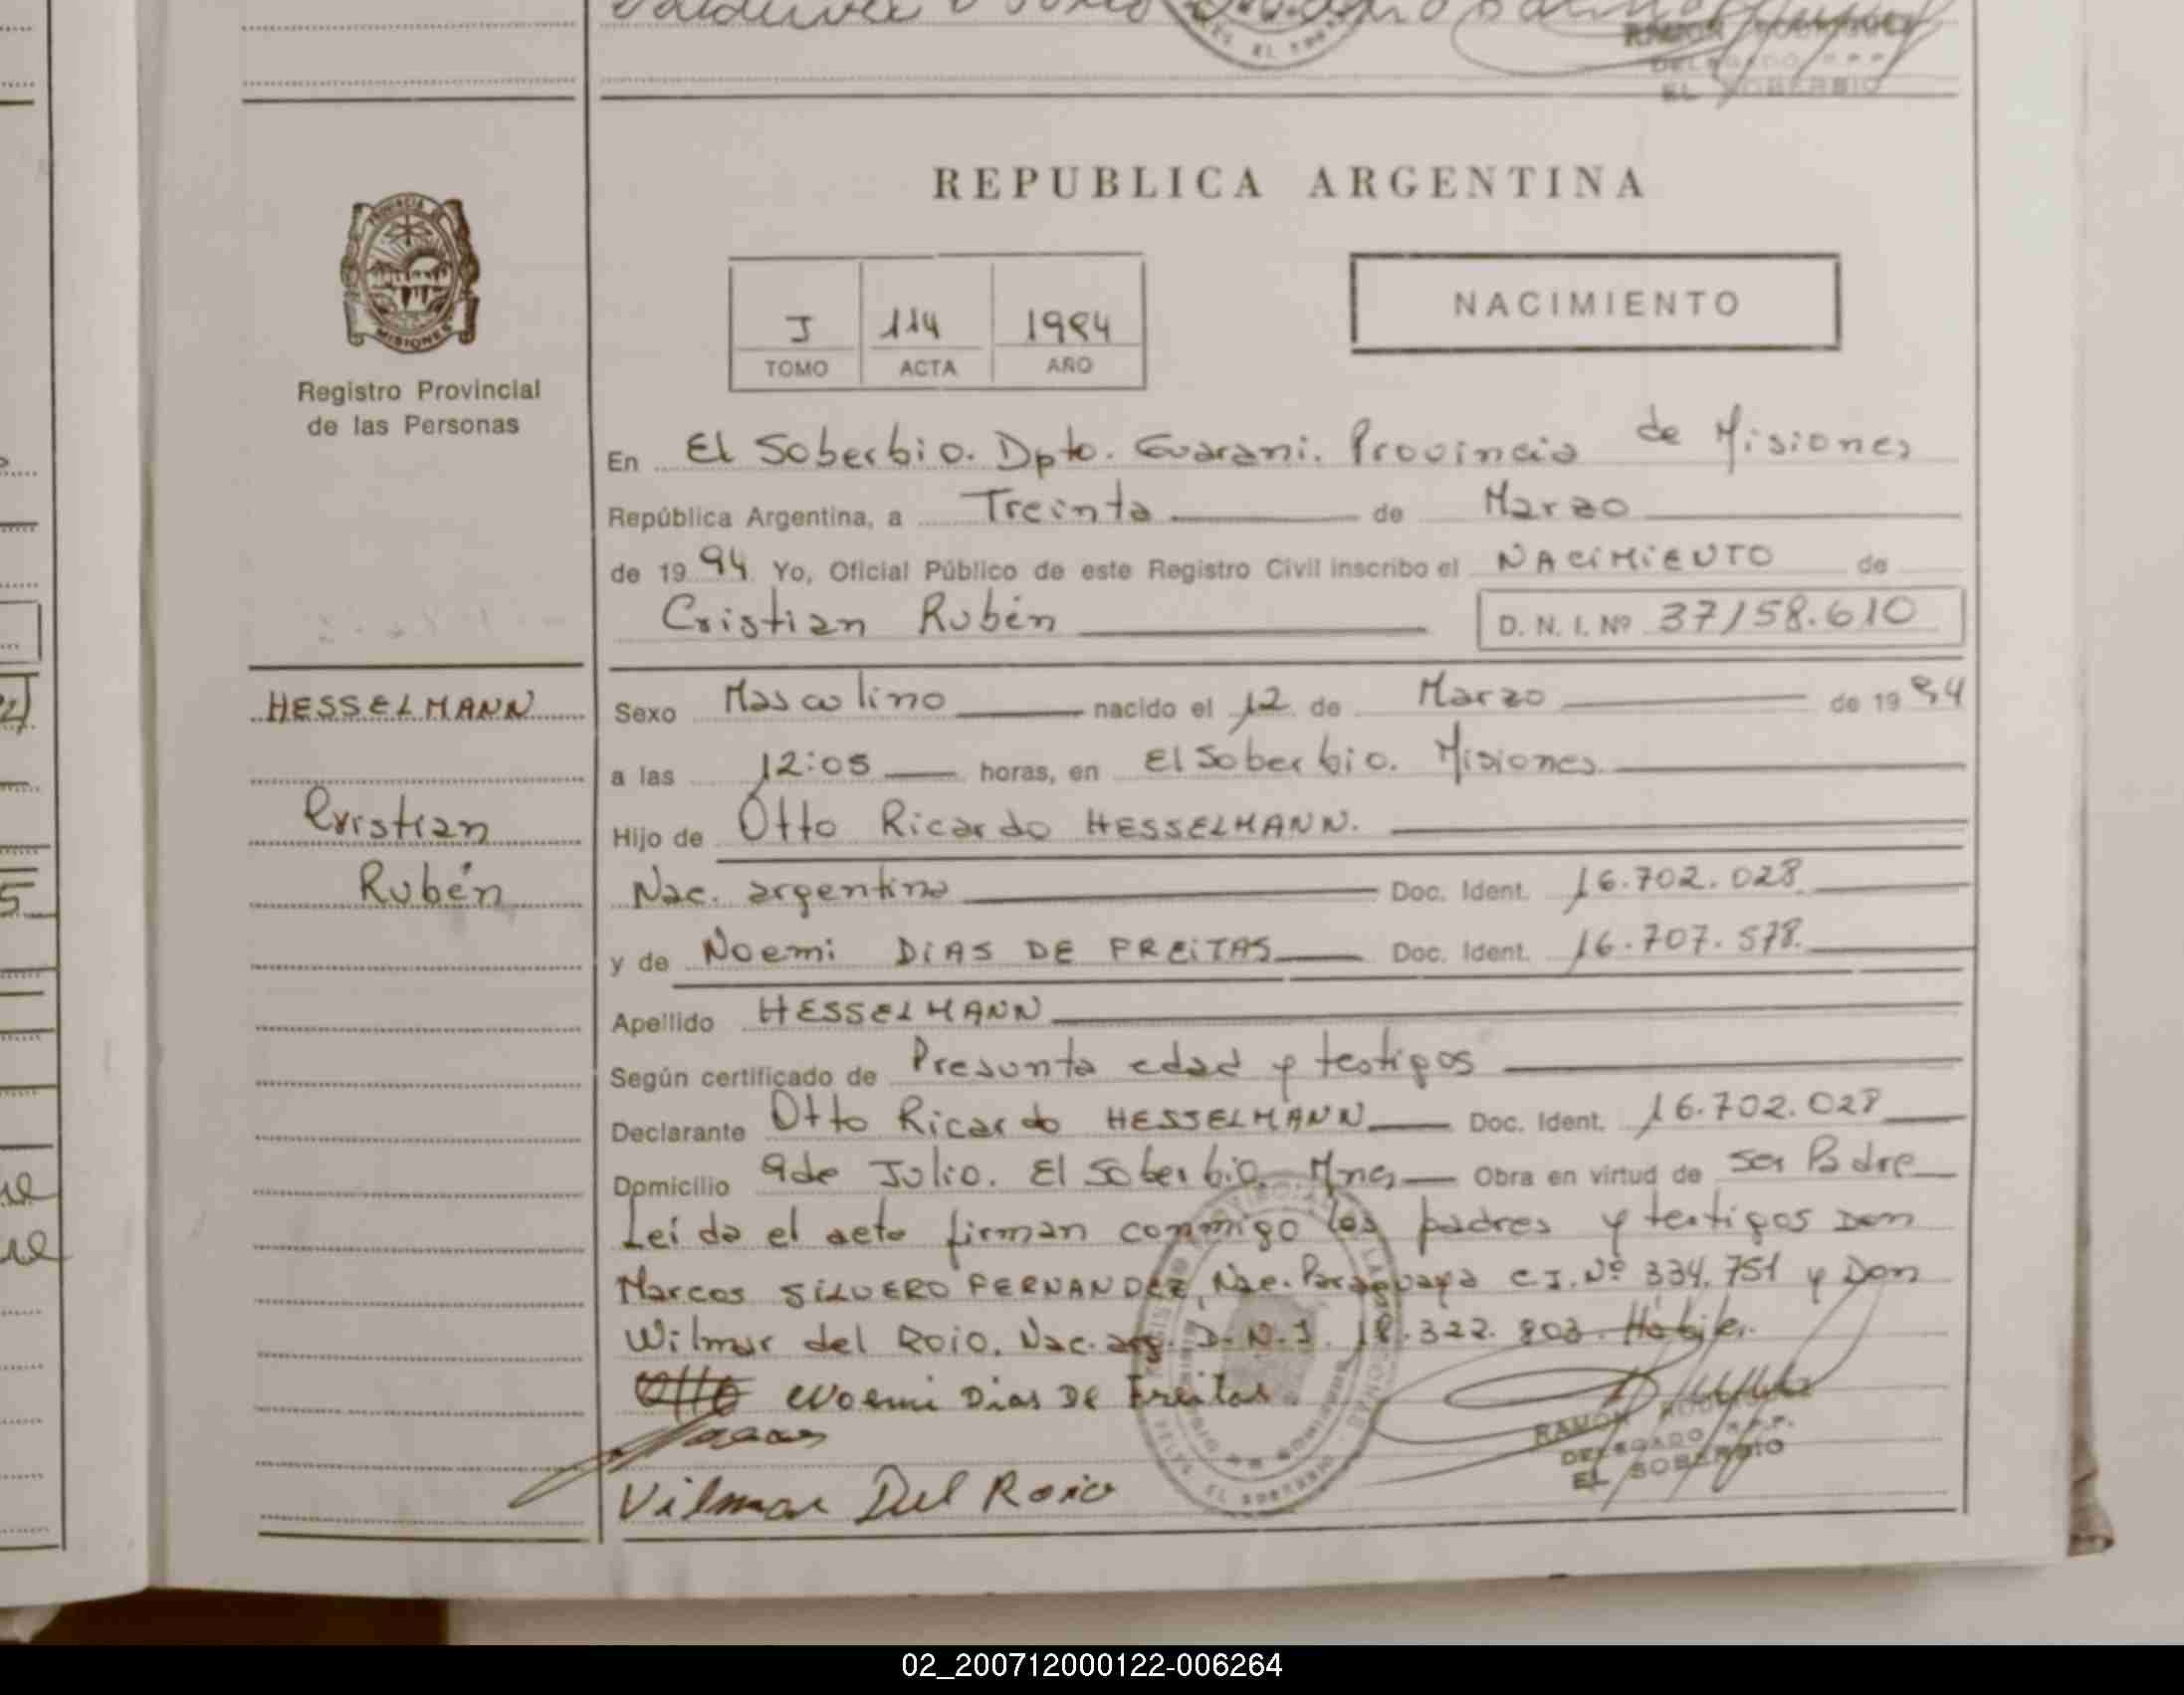 RAMON RODRIGUEZ
EL SOBERBIO
REPUBLICA ARGENTINA
PROVINCIA DE
MISIONES
Registro Provincial
de las Personas
I 114 1994
TOMO ACTA AÑO
NACIMIENTO
En El Soberbio. Dpto. Guarani. Provincia de Misiones
República Argentina, a Treinta de Marzo
de 1994 Yo, Oficial Público de este Registro Civil inscribo el NACIMIENTO de
Cristian Rubén D. N. I. Nº 37158.610
HESSELMANN
Cristian
Rubén
Sexo Masculino nacido el 12 de Marzo de 1994
a las 12:05 horas, en El Soberbio. Misiones
Hijo de Otto Ricardo HESSELMANN.
Nac. argentina Doc. Ident. 16.702.028
y de Noemi DIAS DE FREITAS Doc. Ident. 16.707.578.
Apellido HESSELMANN
Según certificado de Presunta edad y testigos
Declarante Otto Ricardo HESSELMANN Doc. Ident. 16.702.028
Domicilio 9 de Julio. El Soberbio. Mnes Obra en virtud de ser Padre
Leida el acta firman conmigo los padres y testigos Don
Marcos SILVERO FERNANDEZ, Nac. Paraguaya C.I. Nº 334.751 y Don
Wilmar del Roio. Nac. arg. D.N.I. 18.322.803. Hábiles.
Otto Noemi Dias De Freitas
Vilmar Del Roio
RAMON RODRIGUEZ
DELEGADO R.P.P.
EL SOBERBIO
02_200712000122-006264